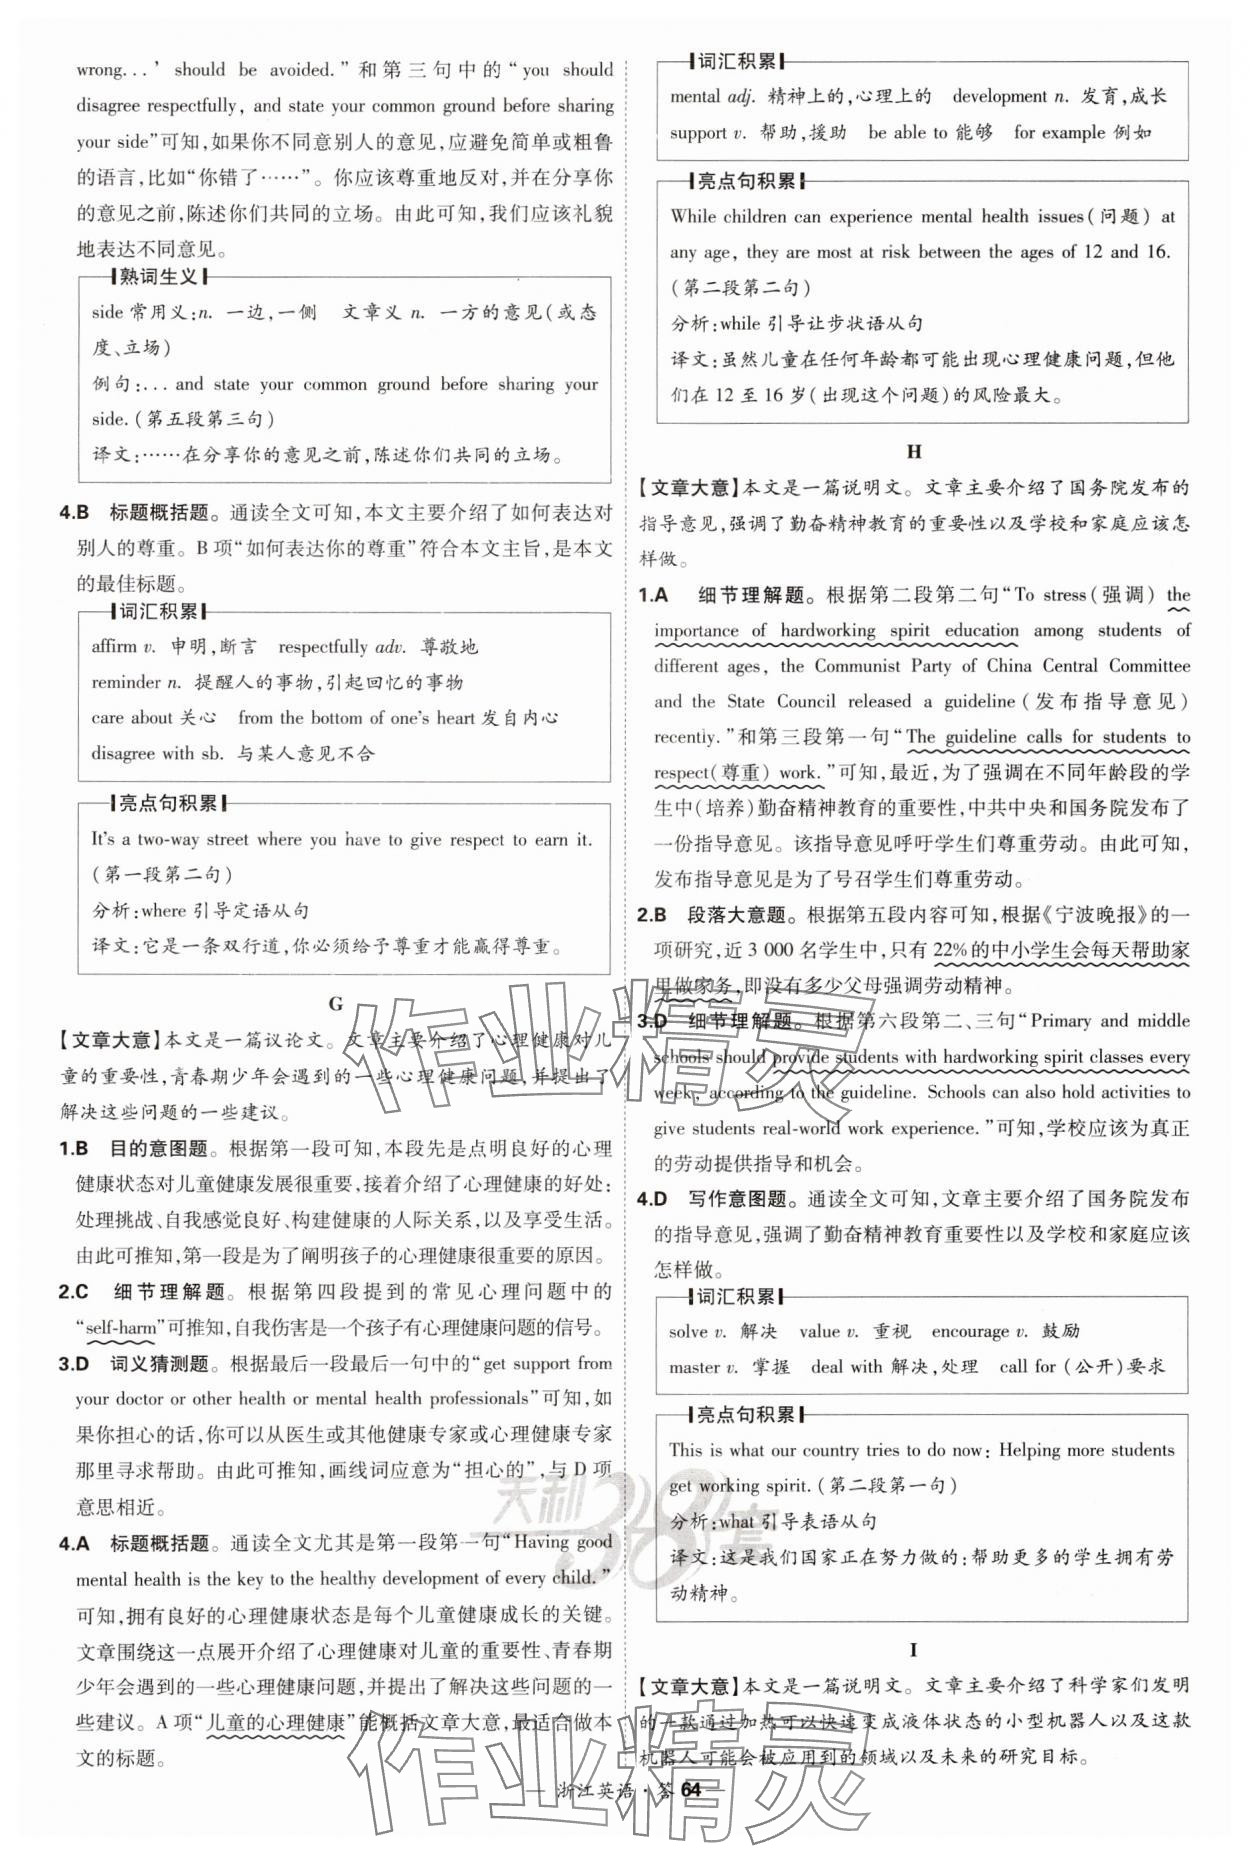 wrong...’ should be avoided.”和第三句中的“you should
disagree respectfully, and state your common ground before sharing
your side”可知,如果你不同意别人的意见,应避免简单或粗鲁
的语言,比如“你错了……”。你应该尊重地反对,并在分享你
的意见之前,陈述你们共同的立场。由此可知,我们应该礼貌
地表达不同意见。
熟词生义
side 常用义:n. 一边,一侧　文章义 n. 一方的意见(或态
度、立场)
例句:... and state your common ground before sharing your
side.(第五段第三句)
译文:……在分享你的意见之前,陈述你们共同的立场。
4.B　标题概括题。通读全文可知,本文主要介绍了如何表达对
别人的尊重。B 项“如何表达你的尊重”符合本文主旨,是本文
的最佳标题。
词汇积累
affirm v. 申明,断言　respectfully adv. 尊敬地
reminder n. 提醒人的事物,引起回忆的事物
care about 关心　from the bottom of one’s heart 发自内心
disagree with sb. 与某人意见不合
亮点句积累
It’s a two-way street where you have to give respect to earn it.
(第一段第二句)
分析:where 引导定语从句
译文:它是一条双行道,你必须给予尊重才能赢得尊重。
G
【文章大意】本文是一篇议论文。文章主要介绍了心理健康对儿
童的重要性,青春期少年会遇到的一些心理健康问题,并提出了
解决这些问题的一些建议。
1.B　目的意图题。根据第一段可知,本段先是点明良好的心理
健康状态对儿童健康发展很重要,接着介绍了心理健康的好处:
处理挑战、自我感觉良好、构建健康的人际关系,以及享受生活。
由此可推知,第一段是为了阐明孩子的心理健康很重要的原因。
2.C　细节理解题。根据第四段提到的常见心理问题中的
“self-harm”可推知,自我伤害是一个孩子有心理健康问题的信号。
3.D　词义猜测题。根据最后一段最后一句中的“get support from
your doctor or other health or mental health professionals”可知,如
果你担心的话,你可以从医生或其他健康专家或心理健康专家
那里寻求帮助。由此可推知,画线词应意为“担心的”,与 D 项
意思相近。
4.A　标题概括题。通读全文尤其是第一段第一句“Having good
mental health is the key to the healthy development of every child.”
可知,拥有良好的心理健康状态是每个儿童健康成长的关键。
文章围绕这一点展开介绍了心理健康对儿童的重要性、青春期
少年会遇到的一些心理健康问题,并提出了解决这些问题的一
些建议。A 项“儿童的心理健康”能概括文章大意,最适合做本
文的标题。
词汇积累
mental adj. 精神上的,心理上的　development n. 发育,成长
support v. 帮助,援助　be able to 能够　for example 例如
亮点句积累
While children can experience mental health issues(问题) at
any age, they are most at risk between the ages of 12 and 16.
(第二段第二句)
分析:while 引导让步状语从句
译文:虽然儿童在任何年龄都可能出现心理健康问题,但他
们在 12 至 16 岁(出现这个问题)的风险最大。
H
【文章大意】本文是一篇说明文。文章主要介绍了国务院发布的
指导意见,强调了勤奋精神教育的重要性以及学校和家庭应该怎
样做。
1.A　细节理解题。根据第二段第二句“To stress(强调) the
importance of hardworking spirit education among students of
different ages, the Communist Party of China Central Committee
and the State Council released a guideline(发布指导意见)
recently.”和第三段第一句“The guideline calls for students to
respect(尊重) work.”可知,最近,为了强调在不同年龄段的学
生中(培养)勤奋精神教育的重要性,中共中央和国务院发布了
一份指导意见。该指导意见呼吁学生们尊重劳动。由此可知,
发布指导意见是为了号召学生们尊重劳动。
2.B　段落大意题。根据第五段内容可知,根据《宁波晚报》的一
项研究,近 3 000 名学生中,只有 22%的中小学生会每天帮助家
里做家务,即没有多少父母强调劳动精神。
3.D　细节理解题。根据第六段第二、三句“Primary and middle
schools should provide students with hardworking spirit classes every
week, according to the guideline. Schools can also hold activities to
give students real-world work experience.”可知,学校应该为真正
的劳动提供指导和机会。
4.D　写作意图题。通读全文可知,文章主要介绍了国务院发布
的指导意见,强调了勤奋精神教育重要性以及学校和家庭应该
怎样做。
词汇积累
solve v. 解决　value v. 重视　encourage v. 鼓励
master v. 掌握　deal with 解决,处理　call for (公开)要求
亮点句积累
This is what our country tries to do now: Helping more students
get working spirit.(第二段第一句)
分析:what 引导表语从句
译文:这是我们国家正在努力做的:帮助更多的学生拥有劳
动精神。
I
【文章大意】本文是一篇说明文。文章主要介绍了科学家们发明
的一款通过加热可以快速变成液体状态的小型机器人以及这款
机器人可能会被应用到的领域以及未来的研究目标。
— 浙江英语·答 64 —
作业精灵
天利38套
作业精灵